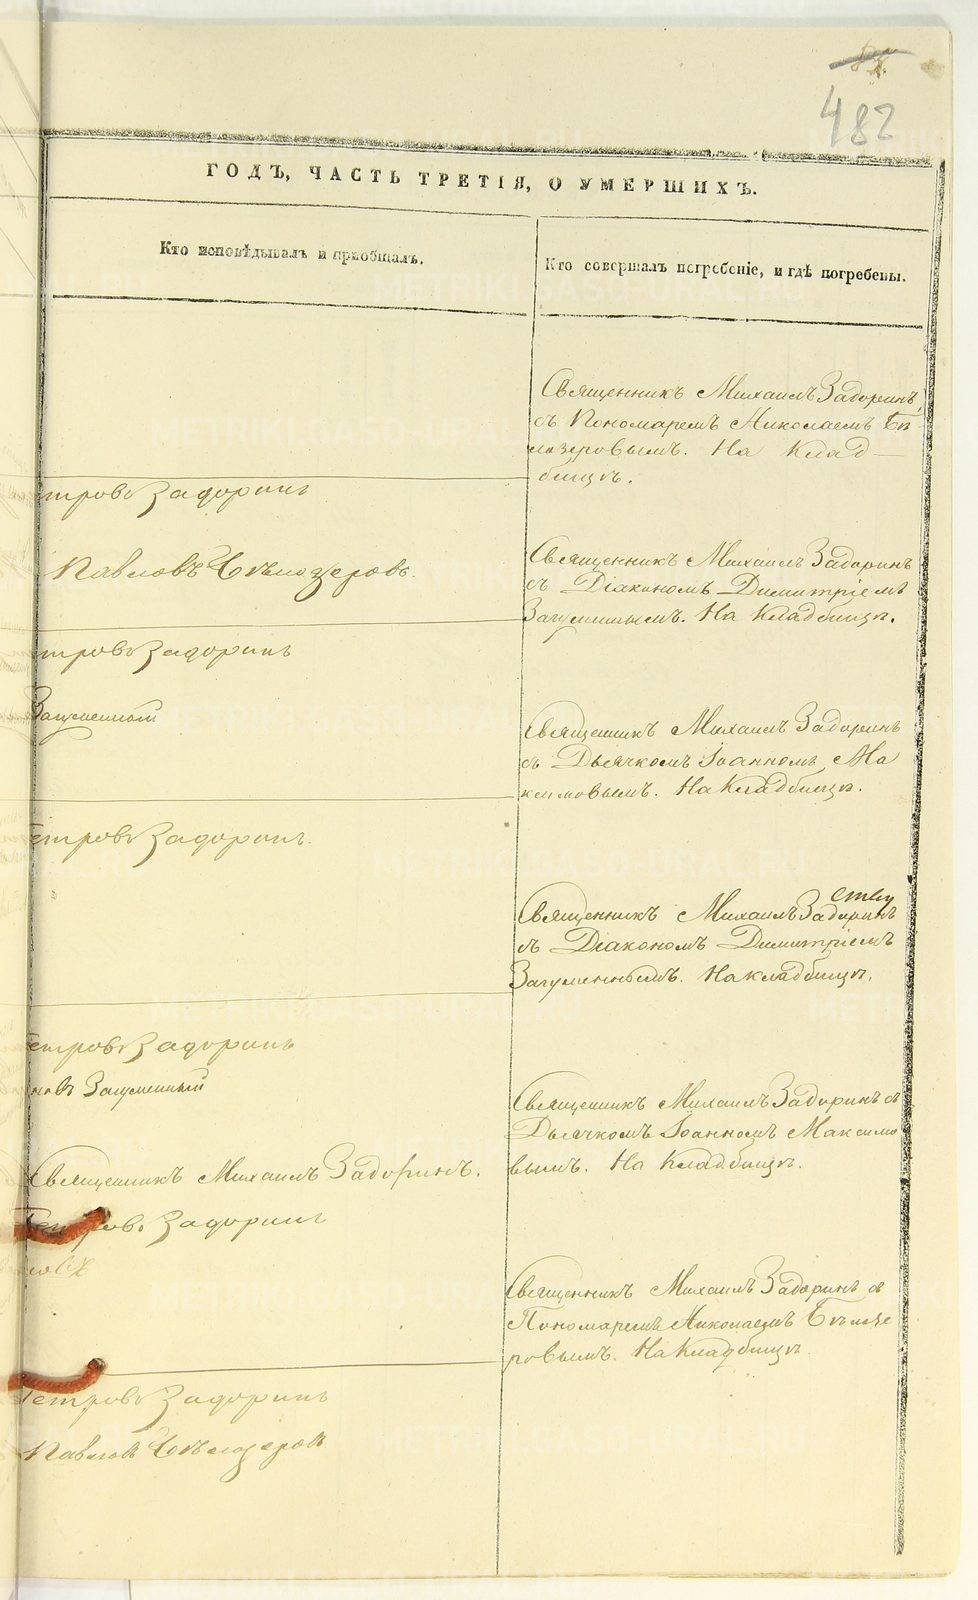 482
ГОДЪ, ЧАСТЬ ТРЕТІЯ, О УМЕРШИХЪ.
Кто исповѣдывалъ и пріобщалъ.
Кто совершалъ погребеніе, и гдѣ погребены.
Священникъ Михаилъ Задоринъ,
съ Пономаремъ Николаемъ Бѣ-
лозеровымъ. На Клад-
бищѣ.
етровъ Задоринъ
Павловъ Бѣлозеровъ.
Священникъ Михаилъ Задоринъ
съ Діакономъ Димитріемъ
Загуменнымъ. На Кладбищѣ.
етровъ Задоринъ
Загуменный
Священникъ Михаилъ Задоринъ
съ Дьячкомъ Іоанномъ Ма
ксимовымъ. На Кладбищѣ.
етровъ Задоринъ.
Священникъ Михаилъ Задоринъ
съ Діакономъ Димитріемъ
Загуменнымъ. На кладбищѣ.
етровъ Задоринъ
новъ Загуменный
Священникъ Михаилъ Задоринъ съ
Дьячкомъ Іоанномъ Максимо
вымъ. На Кладбищѣ.
Священникъ Михаилъ Задоринъ.
Петровъ Задоринъ
Священникъ Михаилъ Задоринъ съ
Пономаремъ Николаемъ Бѣлозе
ровымъ. На Кладбищѣ.
Петровъ Задоринъ
Павловъ Бѣлозеровъ
METRIKI.GASO-URAL.RU